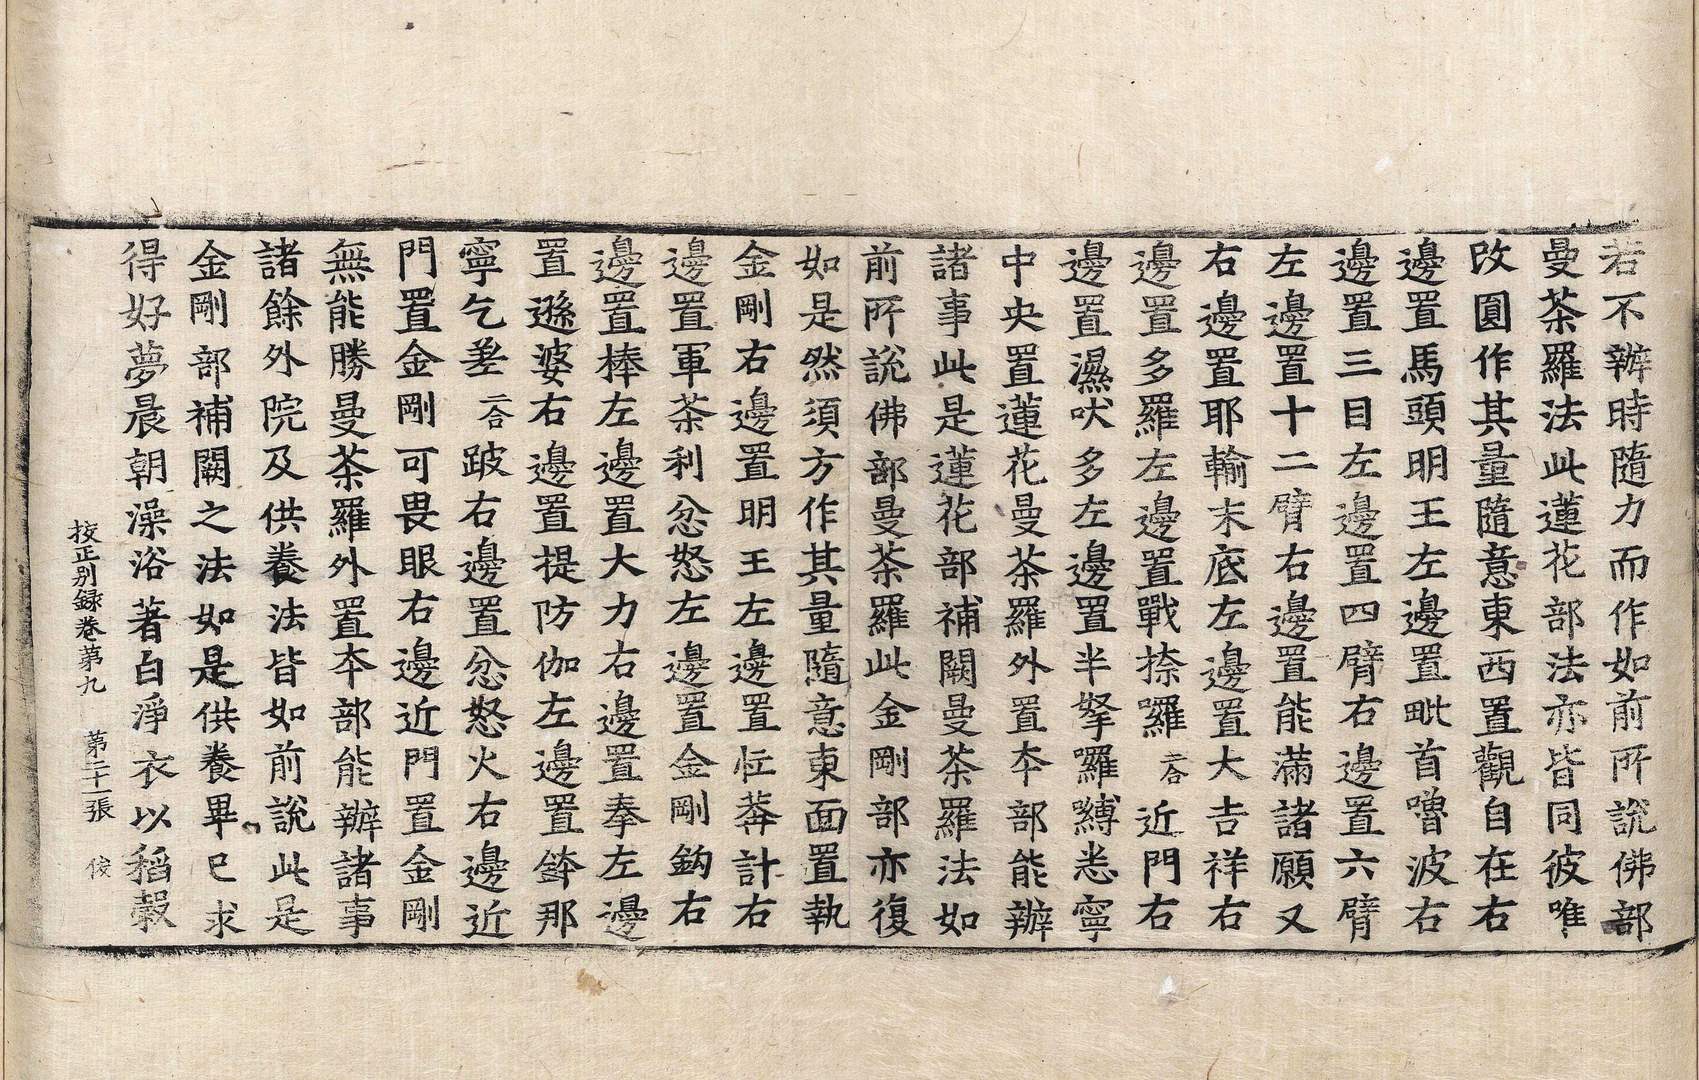 若不辦時隨力而作如前所說佛部
曼茶羅法此蓮花部法亦皆同彼唯
改圓作其量隨意東西置觀自在右
邊置馬頭明王左邊置毗首嚕波右
邊置三目左邊置四臂右邊置六臂
左邊置十二臂右邊置能滿諸願又
右邊置耶輸末底左邊置大吉祥右
邊置多羅左邊置戰捺囉二合近門右
邊置濕吠多左邊置半拏囉縛悉寧
中央置蓮花曼茶羅外置夲部能辦
諸事此是蓮花部補闕曼茶羅法如
前所說佛部曼茶羅此金剛部亦復
如是然須方作其量隨意東面置執
金剛右邊置明王左邊置忙莾計右
邊置軍茶利忿怒左邊置金剛鈎右
邊置棒左邊置大力右邊置拳左邊
置遜婆右邊置提防伽左邊置鉾那
寧乞差二合跛右邊置忿怒火右邊近
門置金剛可畏眼右邊近門置金剛
無能勝曼茶羅外置夲部能辦諸事
諸餘外院及供養法皆如前說此是
金剛部補闕之法如是供養畢已求
得好夢晨朝澡浴著白淨衣以稻穀
挍正别録卷第九　第二十一張　俊